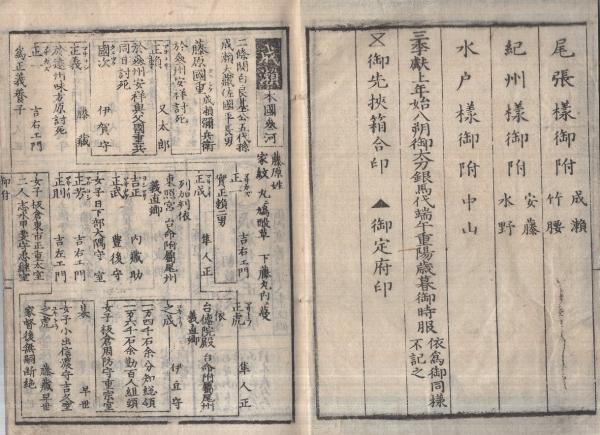 尾張様御附 成瀬 竹腰
紀州様御附 安藤 水野
水戸様御附 中山
三季献上年始八朔御太刀銀馬代端午重陽歳暮御時服 依為御同様 不記之
御先挾箱合印 ▲御定府印
成瀬 本國参河
藤原姓
家紋 丸ニ
二條関白良基公五代孫
成瀬大蔵佐國平長男
藤原國重 成瀬彌兵衛
於参州安祥討死
正頼 又太郎
於参州安祥與父國重共
同日討死
國次 伊賀守
正義 藤蔵
於遠州味方原討死
正一 吉右エ門
為正義養子
正一 吉右エ門
實正頼二男
正成 隼人正
列加判
東照宮 台命附属尾州
義直卿
吉正 内蔵助
正武 豊後守
女子 日下部大隅守室
正芳 吉右エ門
正則 吉左エ門
女子 板倉東市正重大室
二人 志水甲斐守忠継室
正虎 隼人正
依
台徳院殿 台命附属尾州
義直卿
之成 伊豆守
一万四千石余分知総領
一万六千石余勤百人組頭
女子 板倉周防守重宗室
女子 小出信濃守吉久室
之虎 藤蔵早世
家督後無嗣断絶